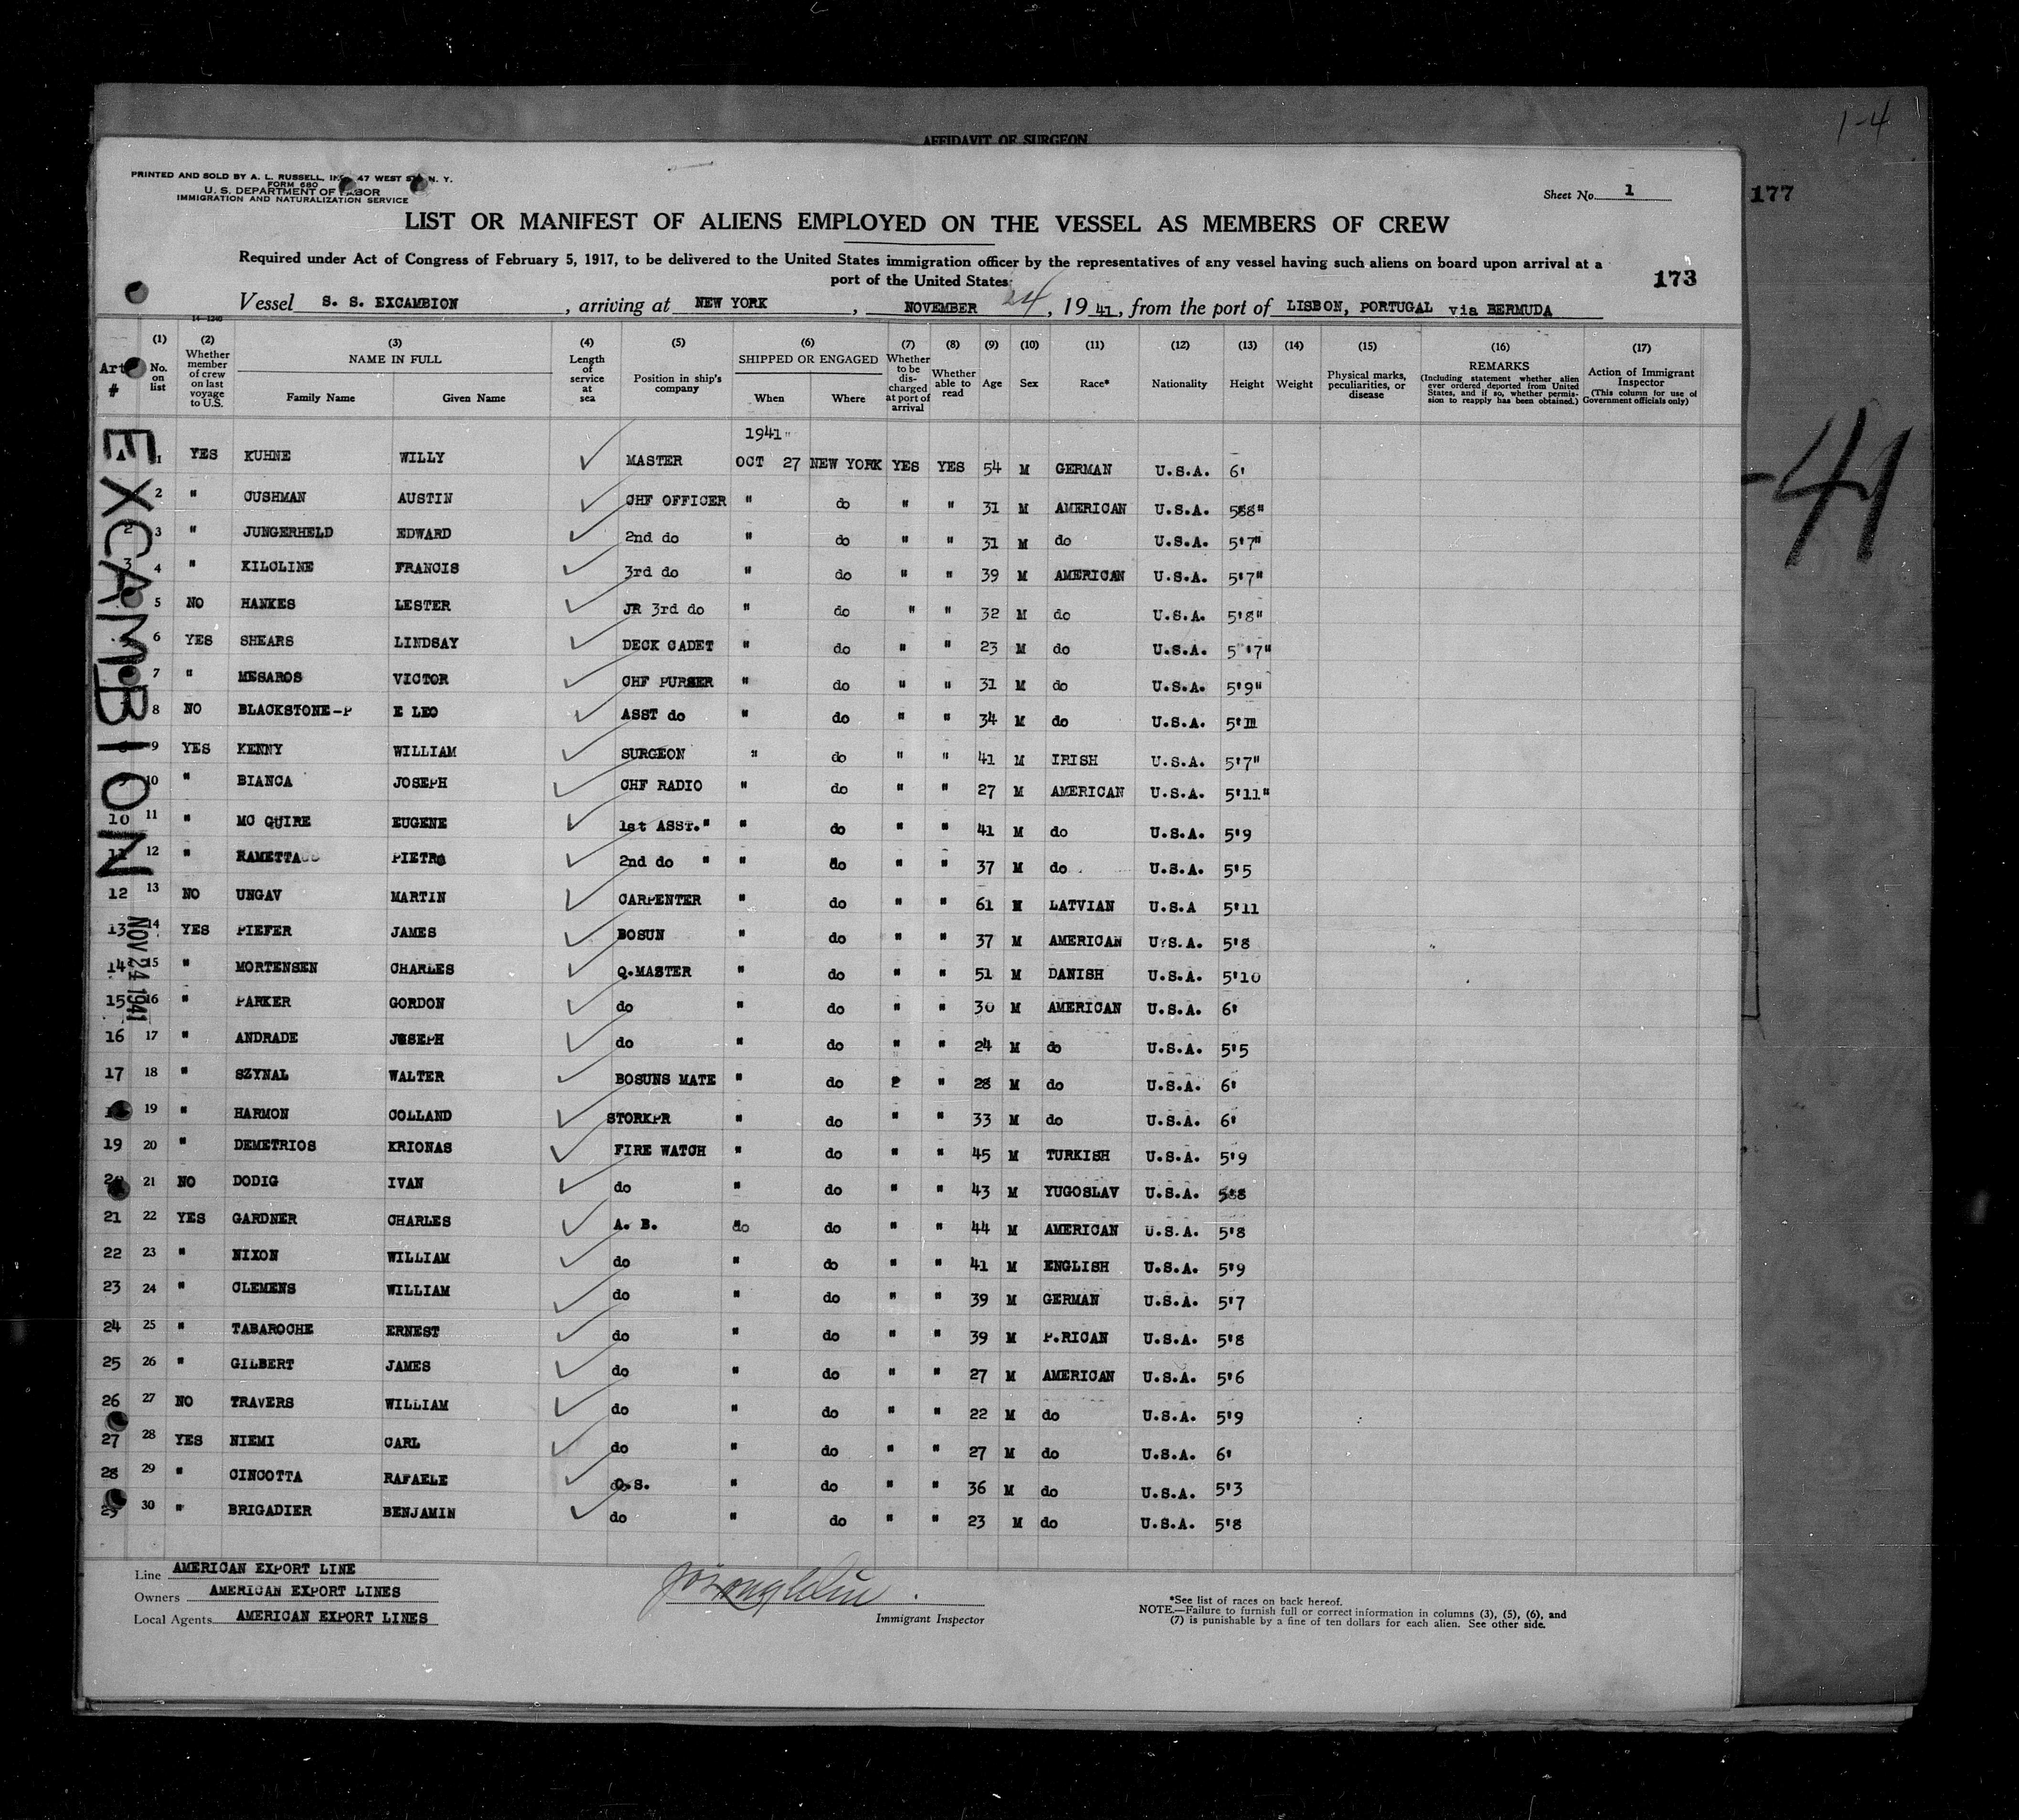 1-4
AFFIDAVIT OF SURGEON
PRINTED AND SOLD BY A. L. RUSSELL, 47 WEST N. Y.
FORM 680
U. S. DEPARTMENT OF LABOR
IMMIGRATION AND NATURALIZATION SERVICE
Sheet No. 1
177
LIST OR MANIFEST OF ALIENS EMPLOYED ON THE VESSEL AS MEMBERS OF CREW
Required under Act of Congress of February 5, 1917, to be delivered to the United States immigration officer by the representatives of any vessel having such aliens on board upon arrival at a
port of the United States
173
Vessel S. S. EXCAMBION, arriving at NEW YORK, NOVEMBER 24, 1941, from the port of LISBON, PORTUGAL via BERMUDA
14-1240
Art # (1) No. on list (2) Whether member of crew on last voyage to U.S. (3) NAME IN FULL Family Name Given Name (4) Length of service at sea (5) Position in ship's company (6) SHIPPED OR ENGAGED When Where (7) Whether to be discharged at port of arrival (8) Whether able to read (9) Age (10) Sex (11) Race* (12) Nationality (13) Height (14) Weight (15) Physical marks, peculiarities, or disease (16) REMARKS (Including statement whether alien ever ordered deported from United States, and if so, whether permission to reapply has been obtained.) (17) Action of Immigrant Inspector (This column for use of Government officials only)
EXCAMBION
NOV 24 1941
-41
1941"
1 YES KUHNE WILLY MASTER OCT 27 NEW YORK YES YES 54 M GERMAN U.S.A. 6'
2 " CUSHMAN AUSTIN CHF OFFICER " do " " 31 M AMERICAN U.S.A. 5'8"
2 3 " JUNGERHELD EDWARD 2nd do " do " " 31 M do U.S.A. 5'7"
3 4 " KILCLINE FRANCIS 3rd do " do " " 39 M AMERICAN U.S.A. 5'7"
5 NO HANKES LESTER JR 3rd do " do " " 32 M do U.S.A. 5'8"
6 YES SHEARS LINDSAY DECK CADET " do " " 23 M do U.S.A. 5"'7"
7 " MESAROS VICTOR CHF PURSER " do " " 31 M do U.S.A. 5'9"
8 NO BLACKSTONE-P E LEO ASST do " do " " 34 M do U.S.A.
8 9 YES KENNY WILLIAM SURGEON " do " " 41 M IRISH U.S.A. 5'7"
9 10 " BIANCA JOSEPH CHF RADIO " do " " 27 M AMERICAN U.S.A. 5'11"
10 11 " MC QUIRE EUGENE 1st ASST." " do " " 41 M do U.S.A. 5'9
11 12 " RAMETTA PIETRO 2nd do " " do " " 37 M do U.S.A. 5'5
12 13 NO UNGAV MARTIN CARPENTER " do " " 61 M LATVIAN U.S.A 5'11
13 14 YES PIEFER JAMES BOSUN " do " " 37 M AMERICAN U.S.A. 5'8
14 15 " MORTENSEN CHARLES Q.MASTER " do " " 51 M DANISH U.S.A. 5'10
15 16 " PARKER GORDON do " do " " 30 M AMERICAN U.S.A. 6'
16 17 " ANDRADE JOSEPH do " do " " 24 M do U.S.A. 5'5
17 18 " SZYNAL WALTER BOSUNS MATE " do 2 " 28 M do U.S.A. 6'
19 " HARMON COLLAND STORKPR " do " " 33 M do U.S.A. 6'
19 20 " DEMETRIOS KRIONAS FIRE WATCH " do " " 45 M TURKISH U.S.A. 5'9
20 21 NO DODIG IVAN do " do " " 43 M YUGOSLAV U.S.A. 5'8
21 22 YES GARDNER CHARLES A. B. do do " " 44 M AMERICAN U.S.A. 5'8
22 23 " NIXON WILLIAM do " do " " 41 M ENGLISH U.S.A. 5'9
23 24 " CLEMENS WILLIAM do " do " " 39 M GERMAN U.S.A. 5'7
24 25 " TABAROCHE ERNEST do " do " " 39 M P.RICAN U.S.A. 5'8
25 26 " GILBERT JAMES do " do " " 27 M AMERICAN U.S.A. 5'6
26 27 NO TRAVERS WILLIAM do " do " " 22 M do U.S.A. 5'9
27 28 YES NIEMI CARL do " do " " 27 M do U.S.A. 6'
28 29 " CINCOTTA RAFAELE O.S. " do " " 36 M do U.S.A. 5'3
29 30 " BRIGADIER BENJAMIN do " do " " 23 M do U.S.A. 5'8
Line AMERICAN EXPORT LINE
Owners AMERICAN EXPORT LINES
Local Agents AMERICAN EXPORT LINES
Immigrant Inspector
*See list of races on back hereof.
NOTE.—Failure to furnish full or correct information in columns (3), (5), (6), and
(7) is punishable by a fine of ten dollars for each alien. See other side.